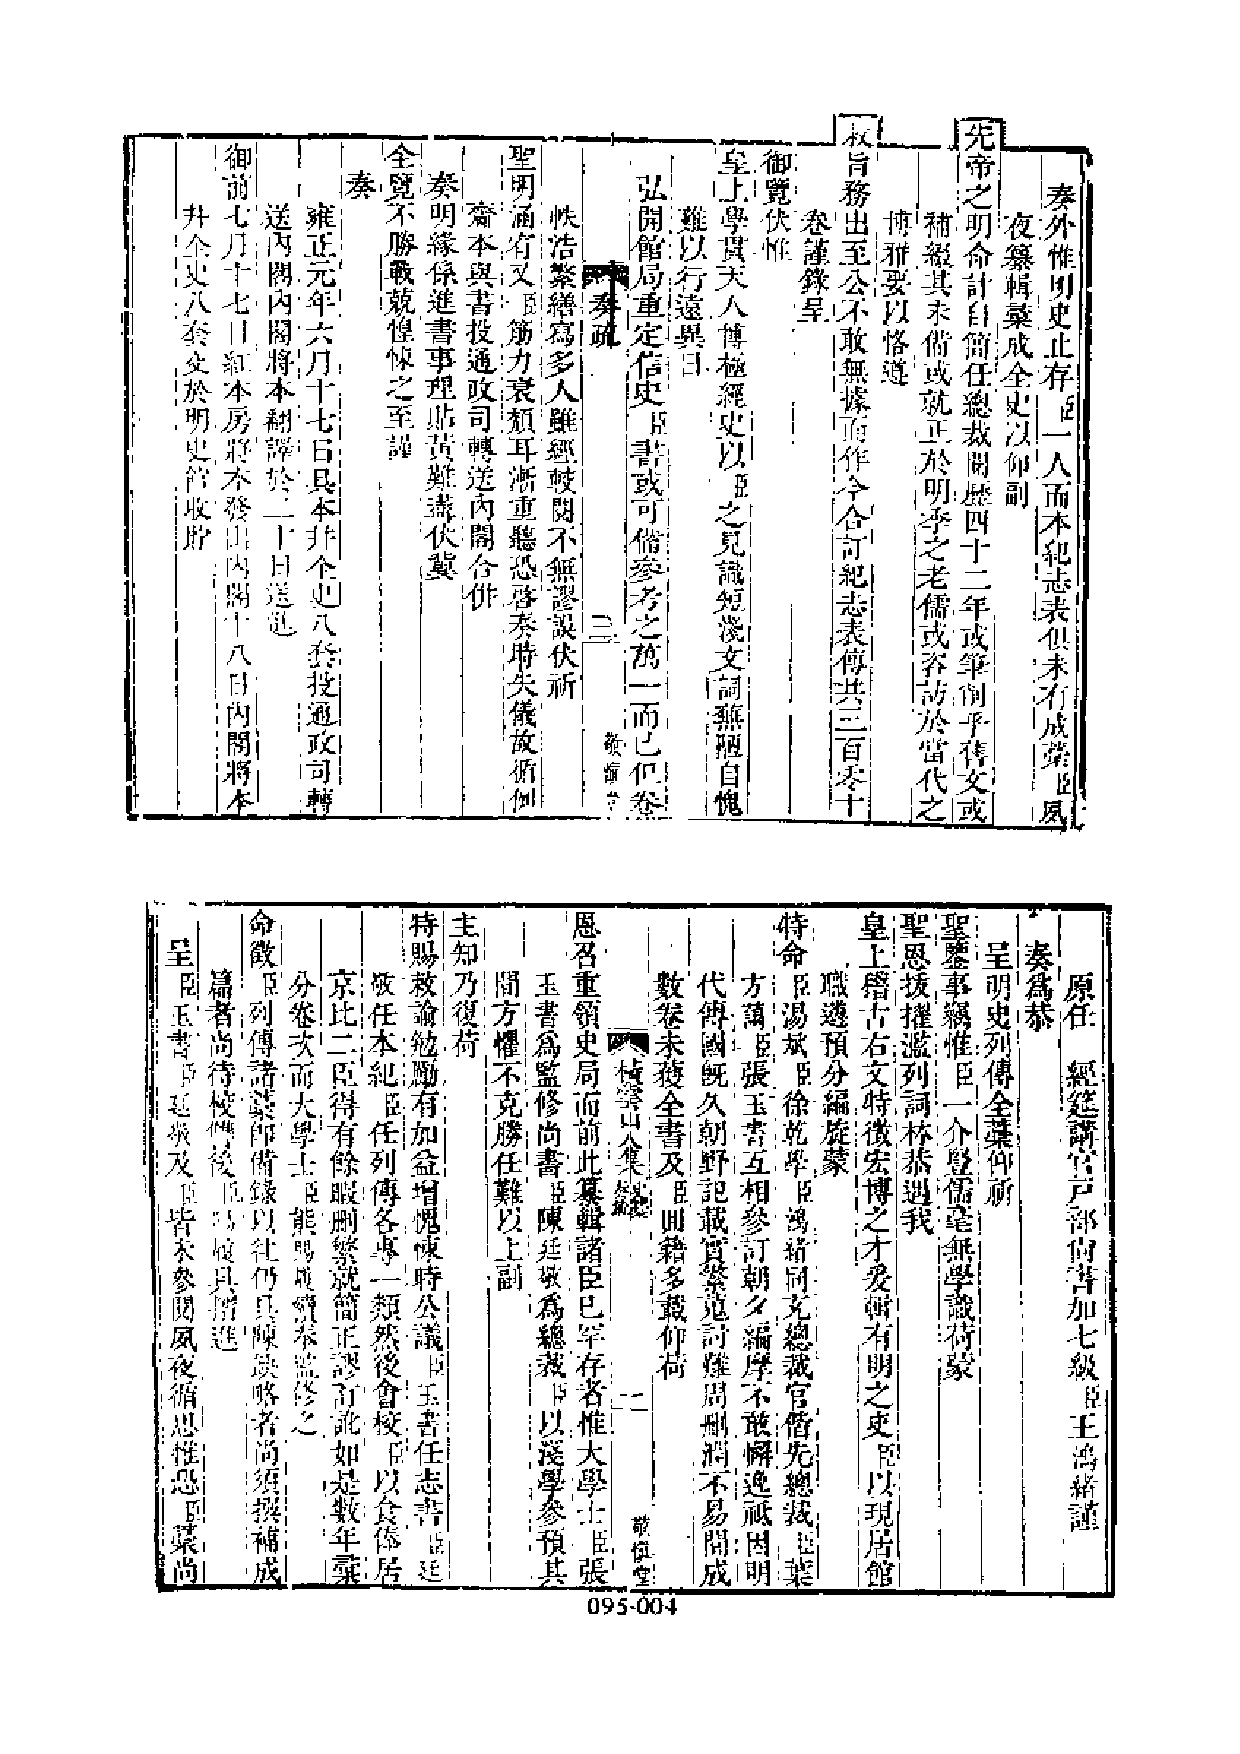 奏外惟明史止存臣一人而本紀志表俱未有成藁臣夙
夜纂輯藁成全史以仰副
先帝之明命計自簡任總裁閱歷四十二年或筆削乎舊文或
補綴其未備或就正於明季之老儒或咨訪於當代之
博雅要以恪遵
叔旨務出至公不敢無據而作今合訂紀志表傳共三百零十
卷謹錄呈
御覽伏惟
皇上學貫天人博極經史以臣之見識短淺文詞蕪陋自愧
難以行遠異日
弘開館局重定信史臣書或可備參考之萬一而已但卷
奏疏 三 敬慎堂
帙浩繁繕寫多人雖經較閱不無謬誤伏祈
聖明涵宥又臣筋力衰頹耳漸重聽恐啓奏時失儀故循例
齋本與書投通政司轉送內閣合併
奏明緣係進書事理貼黃難盡伏冀
全覽不勝戰兢惶悚之至謹
奏
雍正元年六月十七日具本幷全史八套投通政司轉
送內閣內閣將本翻譯於二十日送進
御前七月十七日紅本房將本發出內閣十八日內閣將本
幷全史八套交於明史館收貯
原任 經筵講官戶部尙書加七級臣王鴻緒謹
奏爲恭
呈明史列傳全藁仰祈
聖鑒事竊惟臣一介豎儒毫無學識荷蒙
聖恩拔擢濫列詞林恭遇我
皇上稽古右文特徵宏博之才爰輯有明之史臣以現居館
職遵預分編旋蒙
特命臣湯斌臣徐乾學臣鴻緒同充總裁官偕先總裁臣葉
方藹臣張玉書互相參訂朝夕編摩不敢懈逸祇因明
代傳國旣久朝野記載實繁蒐討難周刪潤不易閱成
數卷未獲全書及臣囘籍多載仰荷
橫雲山人集 二 敬愼堂
恩召重領史局而前此纂輯諸臣已罕存者惟大學士臣張
玉書爲監修尙書臣陳廷敬爲總裁臣以淺學參預其
間方懼不克勝任難以上副
主知乃復荷
特賜敕諭勉勵有加益增愧悚時公議臣玉書任志書臣廷
敬任本紀臣任列傳各專一類然後會校臣以食俸居
京比二臣得有餘暇刪繁就簡正謬訂訛如是數年藁
分卷次而大學士臣熊賜履續奉監修之
命徵臣列傳諸藁卽備錄以往仍具陳缺略者尙須撰補成
篇者尙待校讐後臣賜履具摺進
呈臣玉書臣廷敬及臣皆未參閱夙夜循思惟恐臣藁尙
095-004